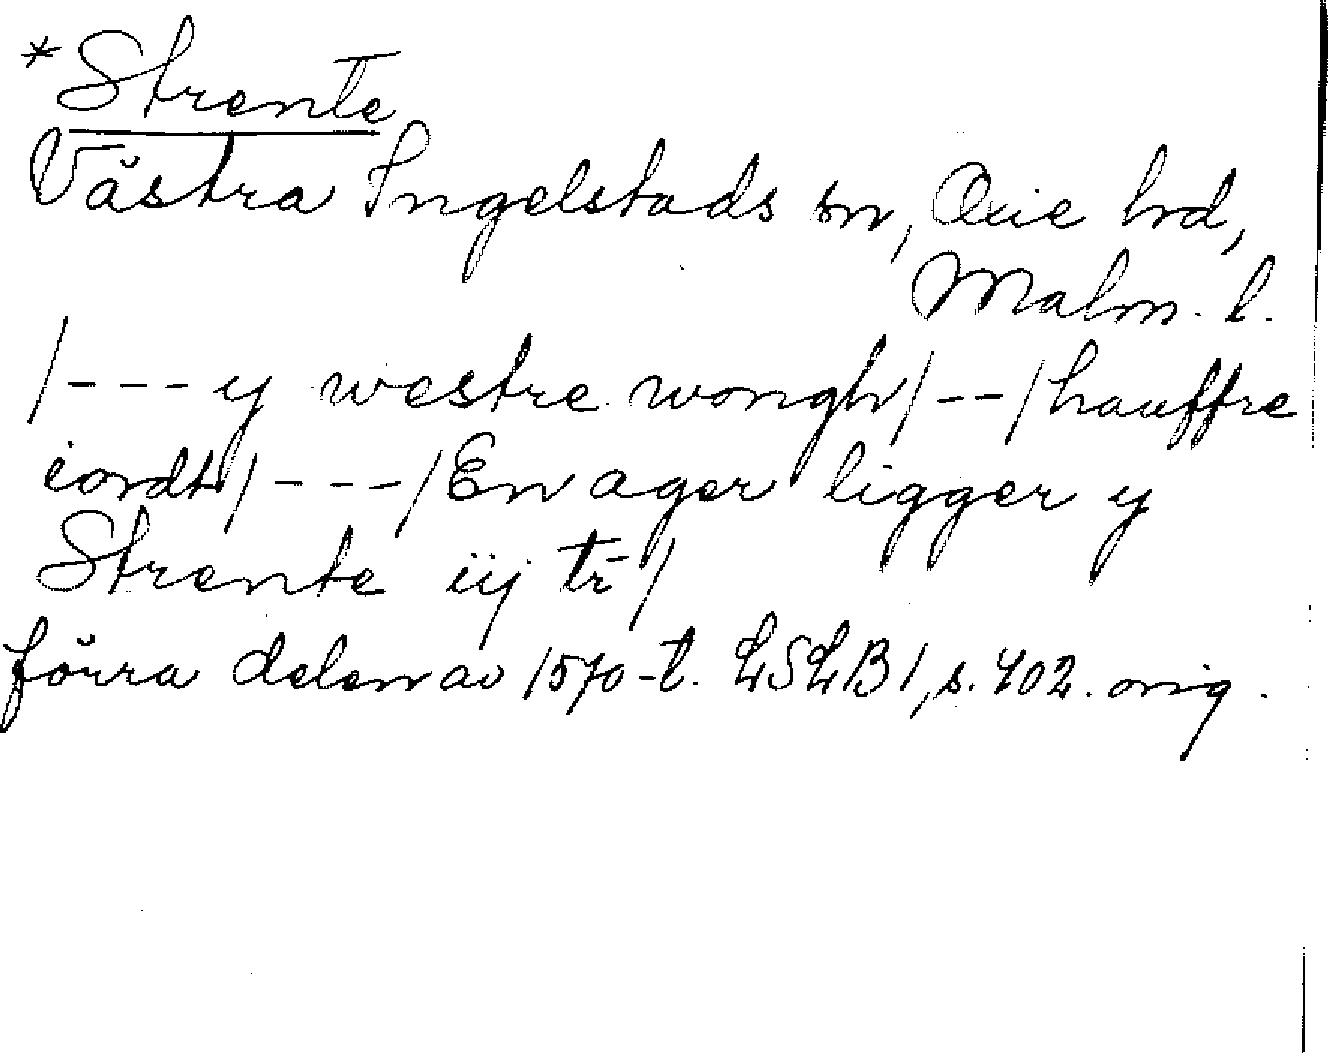 *Strente
Västra Ingelstads sn, Oxie hd,
Malm. l.
/--- y westre wongh/--/hauffre
iordt/---/En ager ligger y
Strente iij tr̄/
förra delen av 1570-t. LSLB1, s. 402. orig.